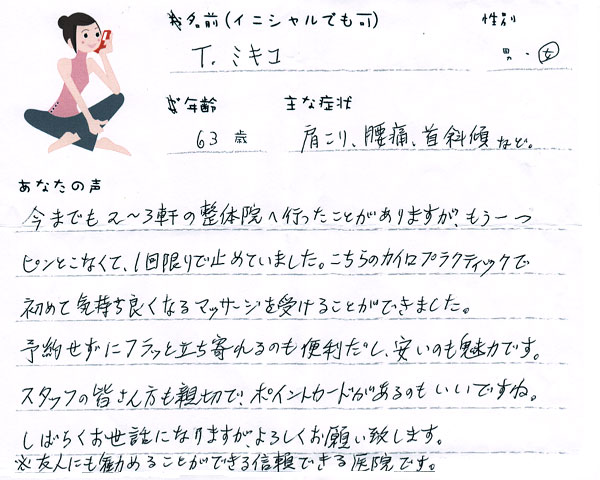 お名前(イニシャルでも可)
性別
T. ミキコ
男・女
お年齢
主な症状
63 歳
肩こり、腰痛、首斜傾 など。
あなたの声
今までも2~3軒の整体院へ行ったことがありますが、もう一つ
ピンとこなくて、1回限りで止めていました。こちらのカイロプラクティックで
初めて気持ち良くなるマッサージを受けることができました。
予約せずにフラッと立ち寄れるのも便利だし、安いのも魅力です。
スタッフの皆さん方も親切で、ポイントカードがあるのもいいですね。
しばらくお世話になりますが、よろしくお願い致します。
※友人にも勧めることができる信頼できる医院です。